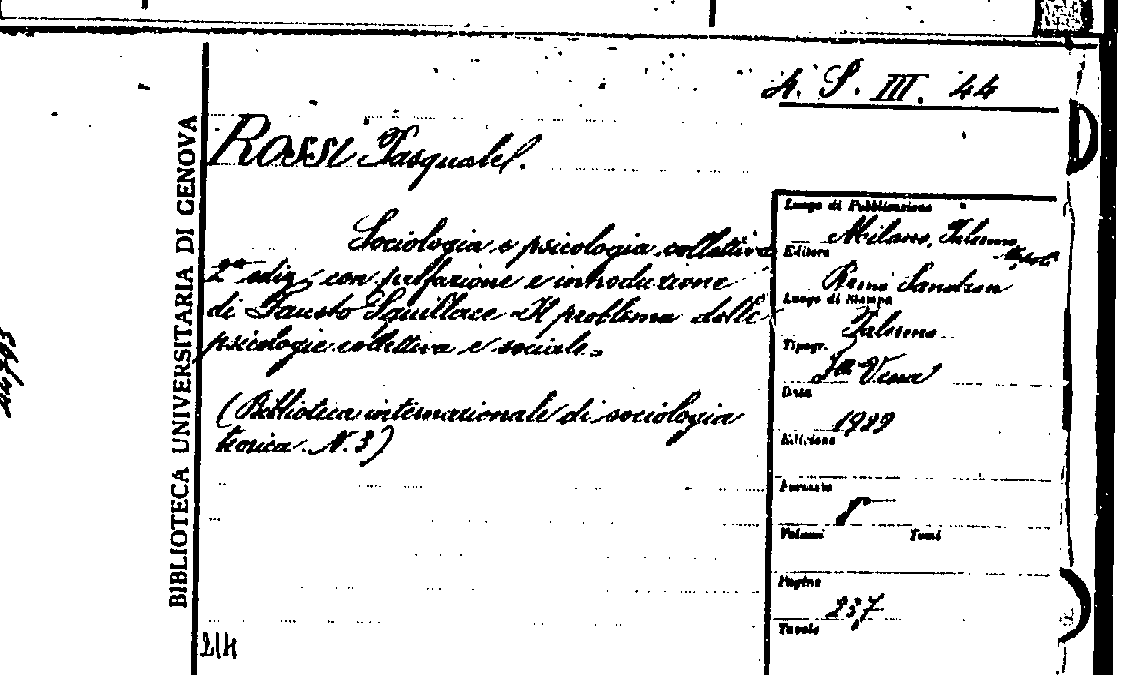 4. S. III. 44
BIBLIOTECA UNIVERSITARIA DI GENOVA
ROSSI Pasquale.
Sociologia e psicologia collettiva
2ª ediz. con prefazione e introduzione
di Fausto Squillace "Il problema delle
psicologie collettiva e sociale."
(Biblioteca internazionale di sociologia
teorica. N. 3)
Luogo di Pubblicazione
Milano, Palermo, Napoli
Editore
Remo Sandron
Luogo di Stampa
Palermo
Tipogr.
Data
Edizione
Formato
8°
Volumi Tomi
Pagine
237
Tavole
214